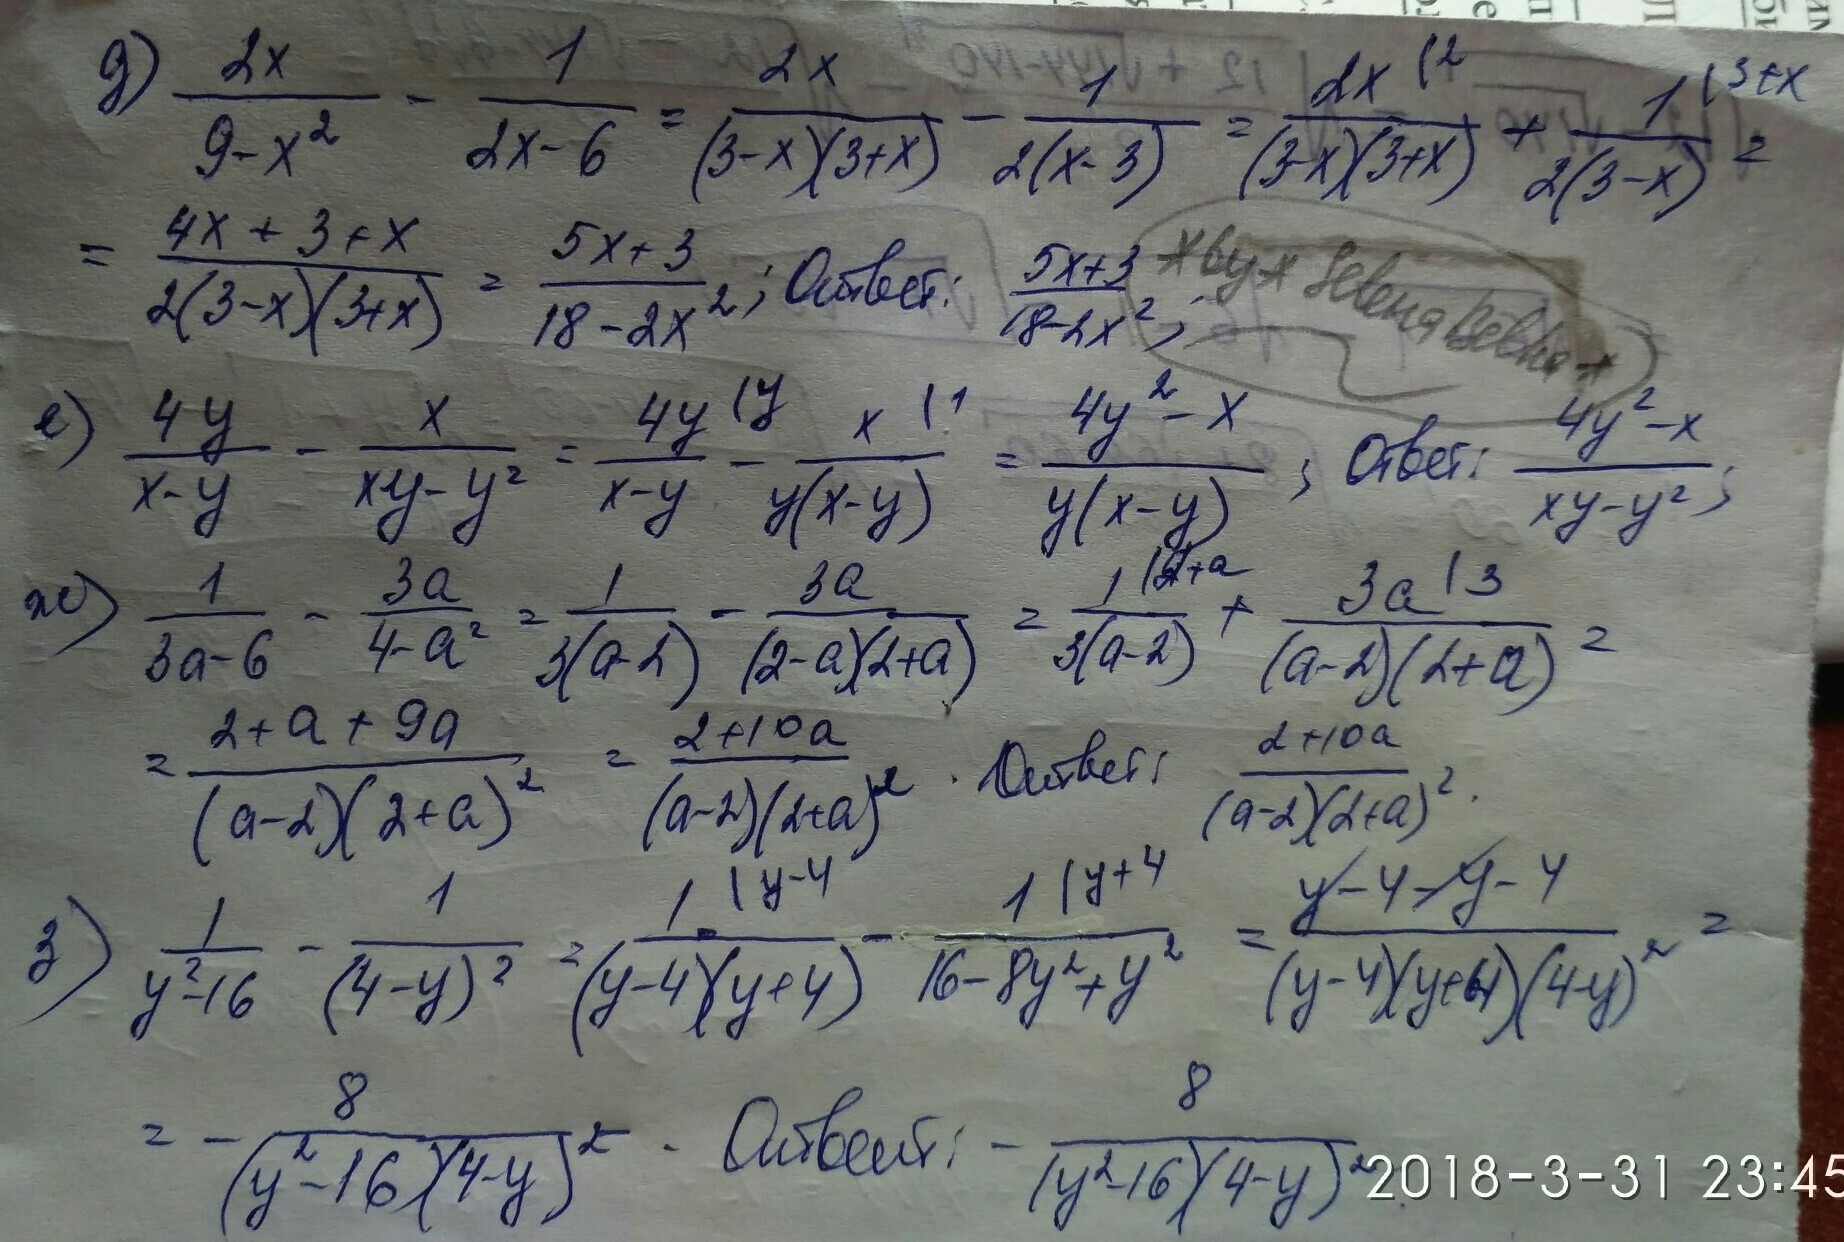 д) 2x/(9-x²) - 1/(2x-6) = 2x/((3-x)(3+x)) - 1/(2(x-3)) = 2x(2/((3-x)(3+x)) + 1(3+x/(2(3-x)) =
= (4x+3+x)/(2(3-x)(3+x)) = (5x+3)/(18-2x²); Ответ: (5x+3)/(18-2x²);
е) 4y/(x-y) - x/(xy-y²) = 4y(y/(x-y) - x(1/(y(x-y)) = (4y²-x)/(y(x-y)); Ответ: (4y²-x)/(xy-y²);
ж) 1/(3a-6) - 3a/(4-a²) = 1/(3(a-2)) - 3a/((2-a)(2+a)) = 1(2+a/(3(a-2)) + 3a(3/((a-2)(2+a)) =
= (2+a+9a)/((a-2)(2+a)²) = (2+10a)/((a-2)(2+a)²). Ответ: (2+10a)/((a-2)(2+a)²).
з) 1/(y²-16) - 1/(4-y)² = 1(y-4/((y-4)(y+4)) - 1(y+4/(16-8y²+y²) = (y-4-y-4)/((y-4)(y+4)(4-y)²) =
= - 8/((y²-16)(4-y)²). Ответ: - 8/((y²-16)(4-y)²)
2018-3-31 23:45